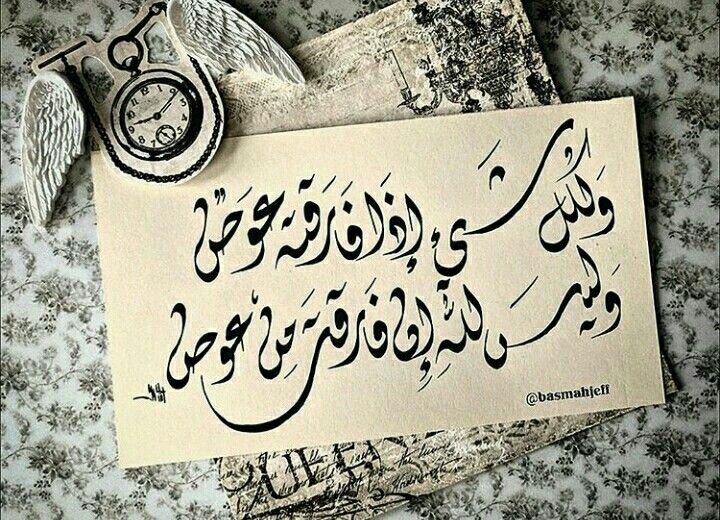 وَلكُل شيءٍ إِذَا فَارَقته عوَضٌ
وَليسَ للّهِ إِن فَارَقتَ مِن عوض
@basmahjeff